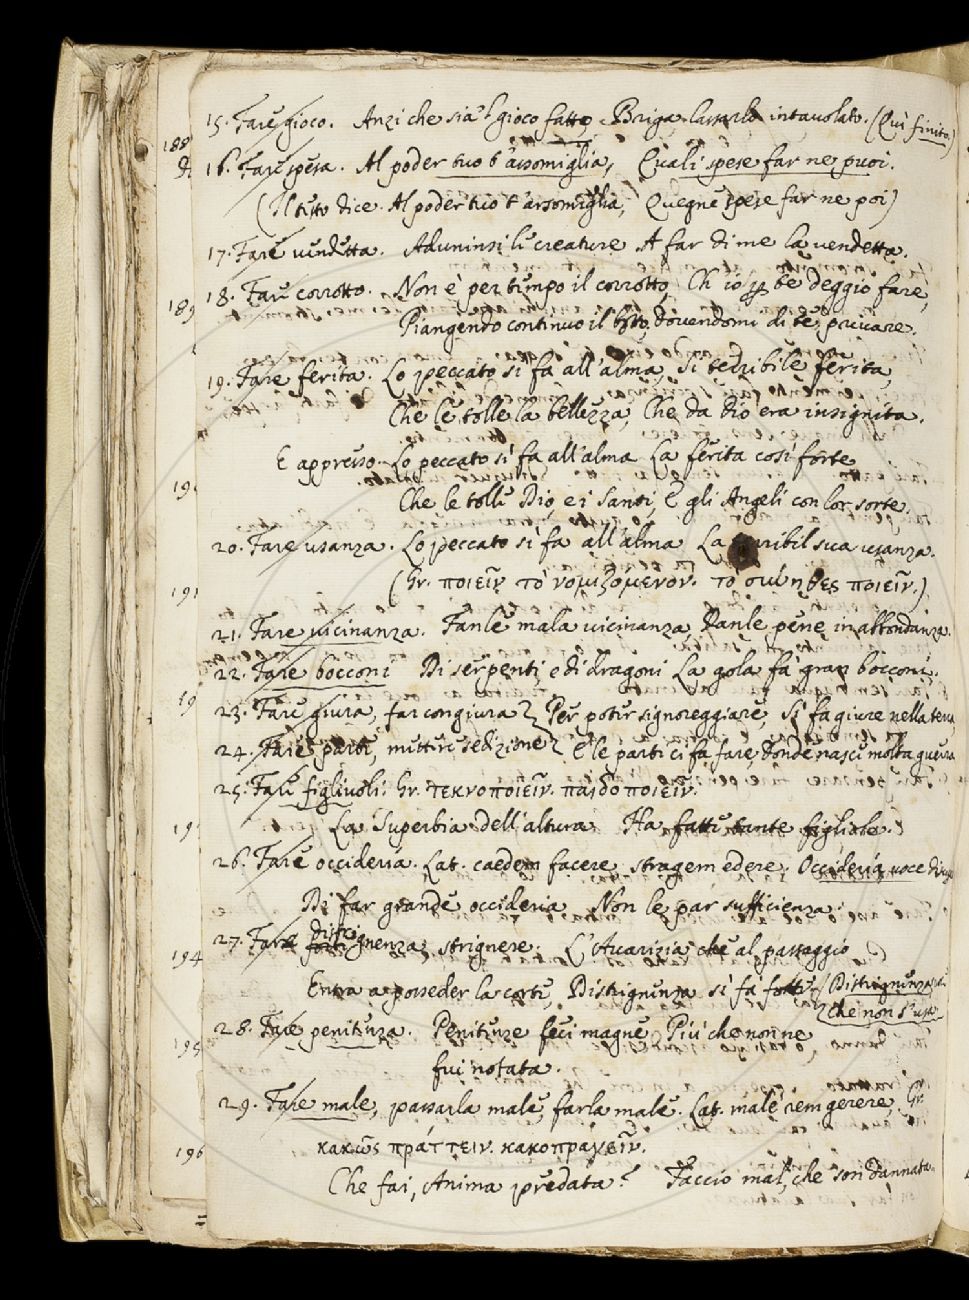 15. Fare gioco. Anzi che sia 'l gioco fatto, Briga lassarlo intavolato. (Qui finito.)
188
16. Fare spesa. Al poder tuo t'assomiglia, Quali spese far ne puoi.
(Il testo dice. Al poder tuo t'assomiglia, Quegne spese far ne poi)
17. Fare vendetta. Aduninsi le creature A far di me la vendetta.
18. Fare corrotto. Non è per tempo il corrotto, Ch'io p te deggio fare,
189
Piangendo continuo il dovendomi di te privare.
19. Fare ferita. Lo peccato si fa all'alma, Si terribile ferita,
Che le tolle la bellezza, Che da Dio era insignita.
E appresso. Lo peccato si fa all'alma La ferita così forte
19
Che le tolle Dio, e i Santi, E gli Angeli con lor sorte.
20. Fare usanza. Lo peccato si fa all'alma La sua usanza.
(Gr. ποιεῖν τὸ νομιζόμενον. τὸ σύνηθες ποιεῖν.)
191
21. Fare vicinanza. Fanle mala vicinanza, Danle pene in abbondanza.
22. Fare bocconi Di serpenti, e di dragoni La gola fa gran bocconi.
19
23. Fare giura, far congiura Per poter signoreggiare, Si fa giure nella terra,
24. Fare parti, mettere sedizione E le parti ci fa fare, Donde nasce molta guerra.
25. Fare figlivoli. Gr. τεκνοποιεῖν. παιδοποιεῖν.
19
La Superbia dell'altura Ha fatte tante figliole.
26. Fare occideria. Lat. caedem facere, stragem edere. Occideria, voce
Di far grande occideria Non le par sufficienza.
27. Fare distrignenza, strignere. L'Avarizia che al passaggio
194
Entra a posseder la corte, Distrignenza si fa forte. (Distrignenza,
che non s'usa.
28. Fare penitenza. Penitenze feci magne Più che non ne
195
fui notata.
29. Fare male, passarla male, farla male. Lat. male rem gerere, Gr.
κακῶς πράττειν. κακοπραγεῖν.
196
Che fai, Anima predata? Faccio mal, che son dannata.